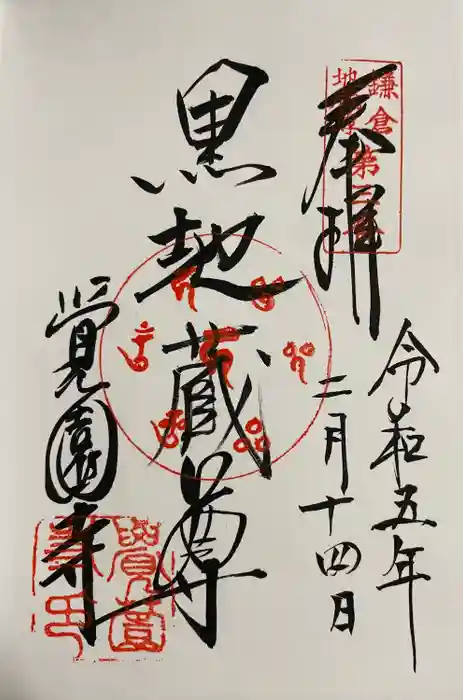 奉拝
鎌倉
地蔵第三番
令和五年
二月十四日
黒地蔵尊
覚園寺